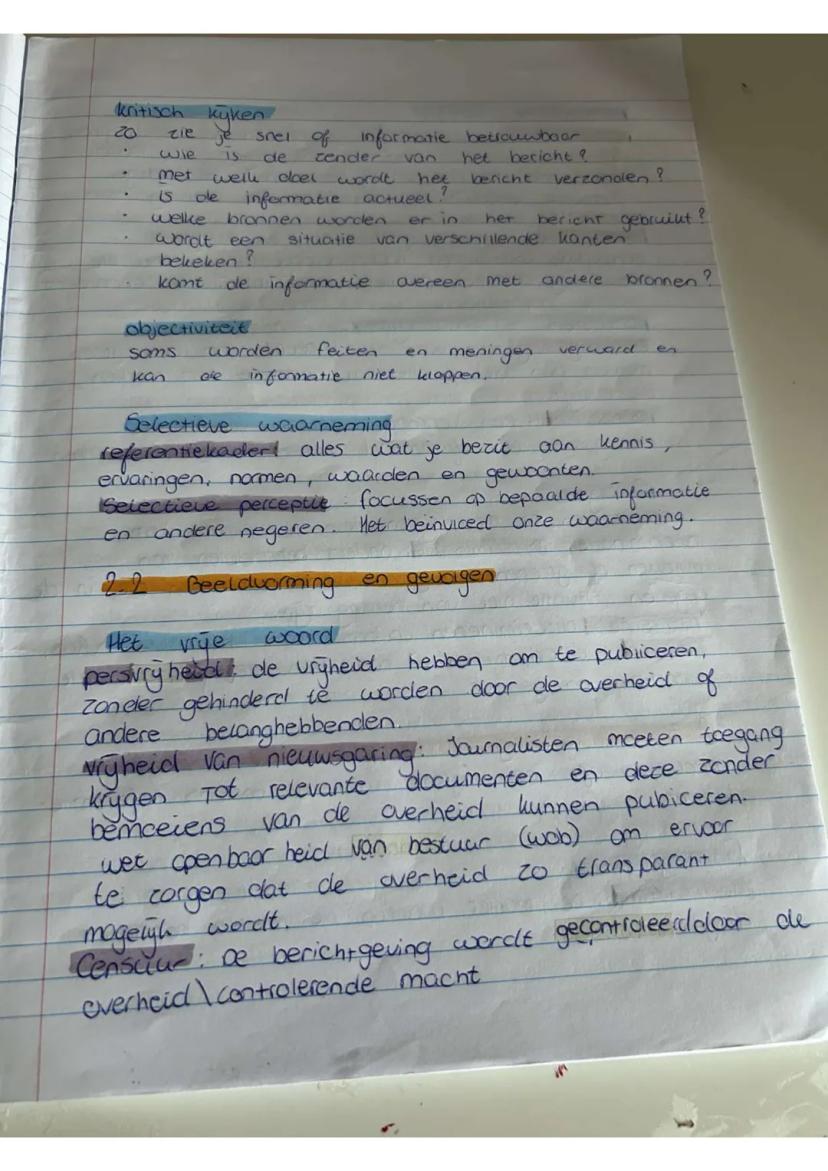 kritisch kijken
zo zie je snel of informatie betrouwbaar
· wie is de zender van het bericht?
· met welk doel wordt het bericht verzonden?
· is de informatie actueel?
· welke bronnen worden er in het bericht gebruikt?
· wordt een situatie van verschillende kanten
bekeken?
· komt de informatie overeen met andere bronnen?
objectiviteit
soms worden feiten en meningen verward en
kan de informatie niet kloppen.
Selectieve waarneming
referentiekader: alles wat je bezit aan kennis,
ervaringen, normen, waarden en gewoonten.
Selectieve perceptie: focussen op bepaalde informatie
en andere negeren. Het beinvloed onze waarneming.
2.2 Beeldvorming en gevolgen
Het vrije woord
persvrijheid: de vrijheid hebben om te publiceren,
zonder gehinderd te worden door de overheid of
andere belanghebbenden.
vrijheid van nieuwsgaring: Journalisten moeten toegang
krijgen tot relevante documenten en deze zonder
bemoeiens van de overheid kunnen pubiceren.
wet openbaarheid van bestuur (wob) om ervoor
te zorgen dat de overheid zo transparant
mogelijk wordt.
Censuur: De berichtgeving wordt gecontroleerd door de
overheid\controlerende macht